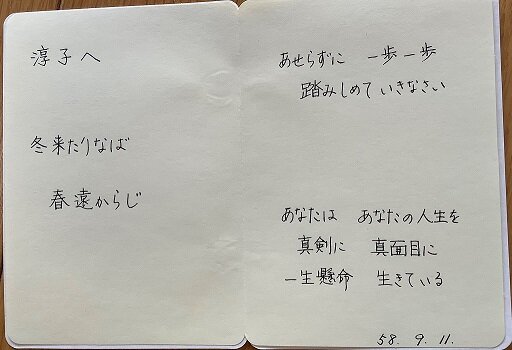 淳子へ
冬来たりなば
春遠からじ
あせらずに 一歩一歩
踏みしめていきなさい
あなたは あなたの人生を
真剣に 真面目に
一生懸命 生きている
58. 9. 11.